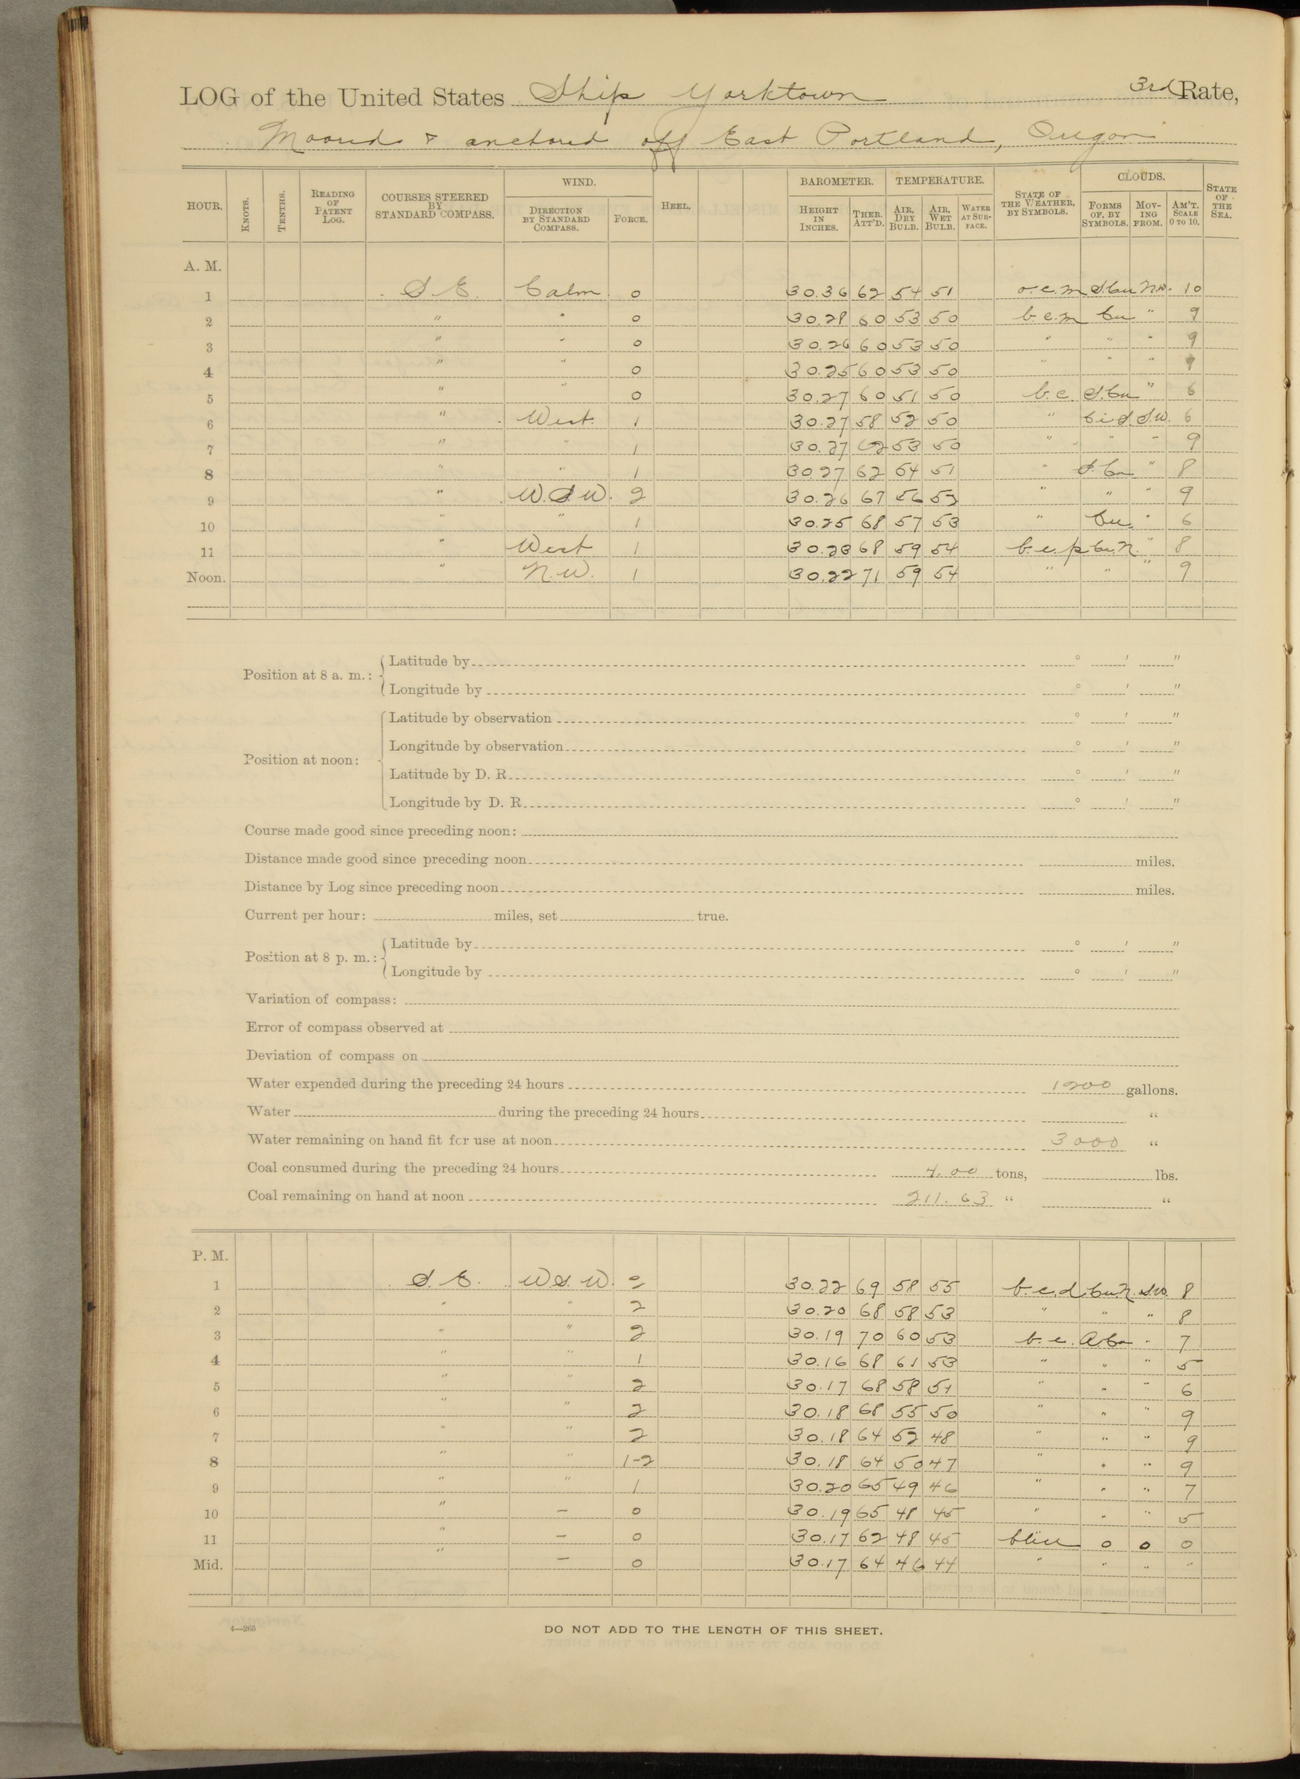 LOG of the United States Ship Yorktown 3rd Rate,
Moored & anchored off East Portland, Oregon
HOUR. KNOTS. TENTHS. READING OF PATENT LOG. COURSES STEERED BY STANDARD COMPASS. WIND. DIRECTION BY STANDARD COMPASS. FORCE. HEEL. BAROMETER. HEIGHT IN INCHES. THER. ATT'D. TEMPERATURE. AIR, DRY BULB. AIR, WET BULB. WATER AT SURFACE. STATE OF THE WEATHER, BY SYMBOLS. CLOUDS. FORMS OF, BY SYMBOLS. MOVING FROM. AM'T. SCALE 0 TO 10. STATE OF THE SEA.
A. M.
1 S. E. Calm 0 30.36 62 54 51 o.c.m S.Cu N.W. 10
2 " " 0 30.28 60 53 50 b.c.m Cu " 9
3 " " 0 30.26 60 53 50 " " " 9
4 " " 0 30.25 60 53 50 " " " 9
5 " " 0 30.27 60 51 50 b.c. S.Cu " 6
6 " West. 1 30.27 58 52 50 " Ci S S.W. 6
7 " " 1 30.27 62 53 50 " " " 9
8 " " 1 30 27 62 54 51 " S.Cu " 8
9 " W.S.W. 2 30.26 67 56 52 " " " 9
10 " " 1 30.25 68 57 53 " Cu. " 6
11 " West 1 30.23 68 59 54 b.c.p Cu.N. " 8
Noon. " N.W. 1 30.22 71 59 54 " " " 9
Position at 8 a. m.: Latitude by ° ' "
Longitude by ° ' "
Position at noon: Latitude by observation ° ' "
Longitude by observation ° ' "
Latitude by D. R. ° ' "
Longitude by D. R. ° ' "
Course made good since preceding noon:
Distance made good since preceding noon miles.
Distance by Log since preceding noon miles.
Current per hour: miles, set true.
Position at 8 p. m.: Latitude by ° ' "
Longitude by ° ' "
Variation of compass:
Error of compass observed at
Deviation of compass on
Water expended during the preceding 24 hours 1200 gallons.
Water during the preceding 24 hours "
Water remaining on hand fit for use at noon 3000 "
Coal consumed during the preceding 24 hours 4.00 tons, lbs.
Coal remaining on hand at noon 211.63 " "
P. M.
1 S. E. W S. W. 2 30.22 69 58 55 b.c.d. Cu.N. S.W. 8
2 " " 2 30.20 68 58 53 " " " 8
3 " " 2 30.19 70 60 53 b. c. A Cu " 7
4 " " 1 30.16 68 61 53 " " " 5
5 " " 2 30.17 68 58 51 " " " 6
6 " " 2 30.18 68 55 50 " " " 9
7 " " 2 30.18 64 52 48 " " " 9
8 " " 1-2 30.18 64 50 47 " " " 9
9 " " 1 30.20 65 49 46 " " " 7
10 " — 0 30.19 65 48 45 " " " 5
11 " — 0 30.17 62 48 45 blue 0 0 0
Mid. " — 0 30.17 64 46 44 " " " "
4—265
DO NOT ADD TO THE LENGTH OF THIS SHEET.